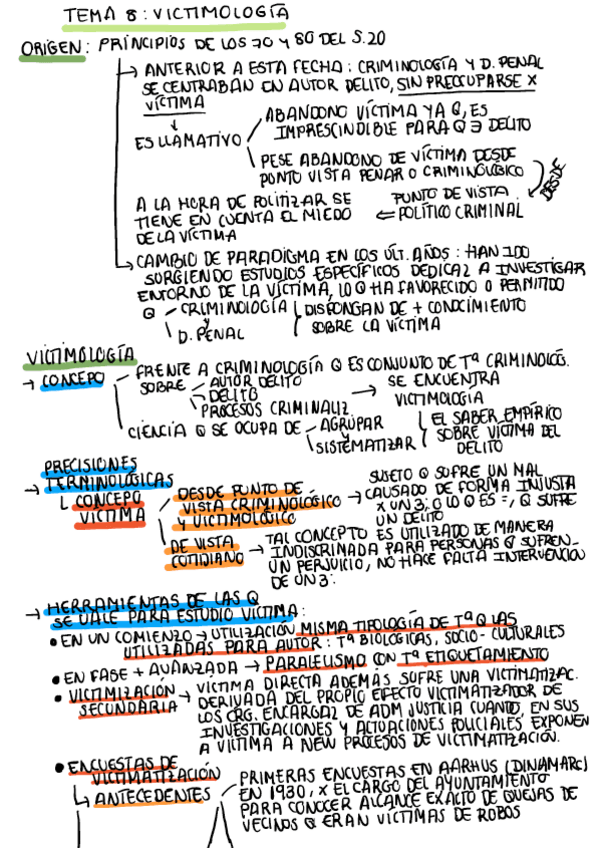 TEMA 8: VICTIMOLOGÍA
ORIGEN: PRINCIPIOS DE LOS 70 Y 80 DEL S.20
→ ANTERIOR A ESTA FECHA: CRIMINOLOGÍA Y D. PENAL
SE CENTRABAN EN AUTOR DELITO, SIN PREOCUPARSE X
VÍCTIMA
↓
ES LLAMATIVO
ABANDONO VÍCTIMA YA Q, ES
IMPRESCINDIBLE PARA Q ∃ DELITO
PESE ABANDONO DE VÍCTIMA DESDE
PUNTO VISTA PENAR O CRIMINOLÓGICO
DESDE
PUNTO DE VISTA
⇐ POLÍTICO CRIMINAL
A LA HORA DE POLITIZAR SE
TIENE EN CUENTA EL MIEDO
DE LA VÍCTIMA
→ CAMBIO DE PARADIGMA EN LOS ÚLT. AÑOS: HAN IDO
SURGIENDO ESTUDIOS ESPECÍFICOS DEDICAZ A INVESTIGAR
ENTORNO DE LA VÍCTIMA, LO Q HA FAVORECIDO O PERMITIDO
Q - CRIMINOLOGÍA
Y
D. PENAL
DISPONGAN DE + CONOCIMIENTO
SOBRE LA VÍCTIMA
VICTIMOLOGÍA
→ CONCEPO
FRENTE A CRIMINOLOGÍA Q ES CONJUNTO DE Tª CRIMINOLÓG.
SOBRE - AUTOR DELITO
- DELITO
PROCESOS CRIMINALIZ
→ SE ENCUENTRA
VICTIMOLOGÍA
CIENCIA Q SE OCUPA DE - AGRUPAR
SISTEMATIZAR
EL SABER EMPÍRICO
SOBRE VÍCTIMA DEL
DELITO
→ PRECISIONES
TERMINOLÓGICAS
CONCEPO
VÍCTIMA
DESDE PUNTO DE
VISTA CRIMINOLÓGICO
Y VICTIMOLÓGICO
→ SUJETO Q SUFRE UN MAL
CAUSADO DE FORMA INJUSTA
X UN 3; O LO Q ES =, Q SUFRE
UN DELITO
DE VISTA
COTIDIANO
→ TAL CONCEPTO ES UTILIZADO DE MANERA
INDISCRINADA PARA PERSONAS Q SUFREN
UN PERJUICIO, NO HACE FALTA INTERVENCIÓN
DE UN 3:
→ HERRAMIENTAS DE LAS Q
SE VALE PARA ESTUDIO VÍCTIMA:
• EN UN COMIENZO → UTILIZACIÓN MISMA TIPOLOGÍA DE Tª Q LAS
UTILIZADAS PARA AUTOR: Tª BIOLÓGICAS, SOCIO-CULTURALES
• EN FASE + AVANZADA → PARALELISMO CON Tª ETIQUETAMIENTO
• VICTIMIZACIÓN
SECUNDARIA
→ VÍCTIMA DIRECTA ADEMÁS SUFRE UNA VÍCTIMIZAC.
DERIVADA DEL PROPIO EFECTO VICTIMATIZADOR DE
LOS ORG. ENCARGAZ DE ADM JUSTICIA CUANDO, EN SUS
INVESTIGACIONES Y ACTUACIONES POLICIALES EXPONEN
A VÍCTIMA A NEW PROCESOS DE VICTIMATIZACIÓN.
• ENCUESTAS DE
VICTIMATIZACIÓN
→ ANTECEDENTES
PRIMERAS ENCUESTAS EN AARHUS (DINAMARC)
EN 1930, X EL CARGO DEL AYUNTAMIENTO
PARA CONOCER ALCANCE EXALTO DE QUEJAS DE
VECINOS Q ERAN VÍCTIMAS DE ROBOS